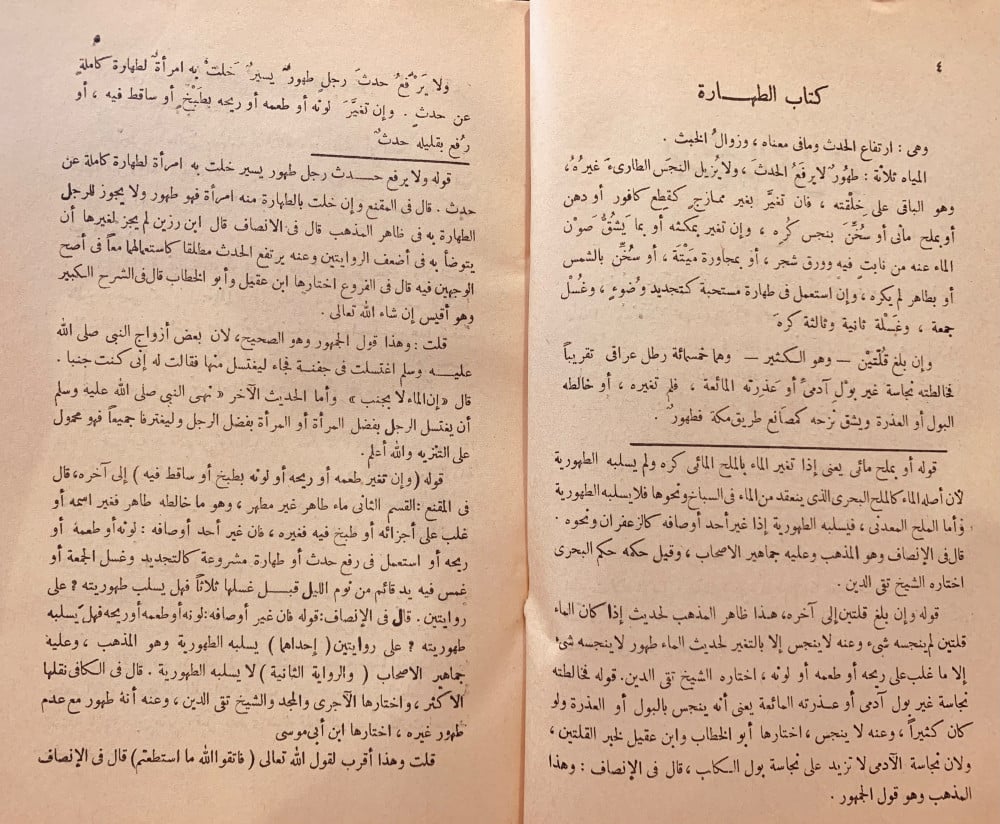 ٤
كتاب الطهـــارة
وهى : ارتفاع الحدث ومافى معناه ، وزوالُ الخبث .
المياه ثلاثة : طهُورٌ لا يرفَعُ الحدثَ ، ولا يُزيل النجَس الطارىءَ غيرُهُ ،
وهو الباقى على خِلْقته ، فان تغيَّر بغير ممازِج كقِطع كافور أو دهن
أو بملح مائى أو سُخِّنَ بنجس كُرِه ، وإن تغير بمكثه أو بما يَشُقُّ صَوْن
الماء عنه من نابت فيه وورق شجر ، أو بمجاورة مَيْتَة ، أو سُخِّن بالشمس
أو بطاهر لم يكره ، وإن استعمل فى طهارة مستحبة كتجديد وُضُوءٍ ، وغُسْل
جمعة ، وغَسْلة ثانية وثالثة كرهَ
وإن بلغ قُلَّتَيْن — وهو الكثير — وهما خمسمائة رطل عراقى تقريباً
فخالطته نجاسة غير بول آدمىّ أو عَذِرَته المائعة ، فلم تغيره ، أو خالطه
البول أو العذرة ويشق نَزْحه كمصَانع طريق مكة فطهورٌ .
قوله أو بملح مائى يعنى إذا تغير الماء بالملح المائى كره ولم يسلبه الطهورية
لأن أصله الماء كالملح البحرى الذى ينعقد من الماء فى السباخ ونحوها فلا يسلبه الطهورية
وأما الملح المعدنى ، فيسلبه الطهورية إذا غير أحد أوصافه كالزعفران ونحوه
قال فى الإنصاف وهو المذهب وعليه جماهير الاصحاب ، وقيل حكمه حكم البحرى
اختاره الشيخ تقى الدين .
قوله وإن بلغ قلتين إلى آخره ، هذا ظاهر المذهب لحديث إذا كان الماء
قلتين لم ينجسه شىء وعنه لا ينجس إلا بالتغير لحديث الماء طهور لا ينجسه شىء
إلا ما غلب على ريحه أو طعمه أو لونه ، اختاره الشيخ تقى الدين. قوله فخالطته
نجاسة غير بول آدمى أو عذرته المائعة يعنى أنه ينجس بالبول أو العذرة ولو
كان كثيراً ، وعنه لا ينجس ، اختارها أبو الخطاب وابن عقيل لخبر القلتين ،
ولان نجاسة الآدمى لا تزيد على نجاسة بول الكلب ، قال فى الإنصاف : وهذا
المذهب وهو قول الجمهور .
٥
ولا يَرْفعُ حدثَ رجلٍ طهورٌ يسيرٌ خلَت به امرأةٌ لطهارة كاملةٍ
عن حدثٍ . وإن تغيَّرَ لونه أو طعمه أو ريحه بطَبْخٍ أو ساقط فيه ، أو
رُفع بقليله حدثٌ
قوله ولا يرفع حـــدث رجل طهور يسير خلت به امرأة لطهارة كاملة عن
حدث . قال فى المقنع وإن خلت بالطهارة منه امرأة فهو طهور ولا يجوز للرجل
الطهارة به فى ظاهر المذهب قال فى الانصاف قال ابن رزين لم يجز لغيرها أن
يتوضأ به فى أضعف الروايتين وعنه يرتفع الحدث مطلقا كاستعمالهما معاً فى أصح
الوجهين فيه قال فى الفروع اختارها ابن عقيل وأبو الخطاب قال فى الشرح الكبير
وهو أقيس إن شاء الله تعالى .
قلت : وهذا قول الجمهور وهو الصحيح ، لان بعض أزواج النبى صلى الله
عليـــه وسلم اغتسلت فى جفنة فجاء ليغتسل منها فقالت له إنى كنت جنبا .
قال «إن الماء لا يجنب» وأما الحديث الآخر « نهى النبى صلى الله عليه وسلم
أن يغتسل الرجل بفضل المرأة أو المرأة بفضل الرجل وليغترفا جميعاً فهو محمول
على التنزيه والله أعلم .
قوله (وإن تغير طعمه أو ريحه أو لونه بطبخ أو ساقط فيه ) إلى آخره، قال
فى المقنع : القسم الثانى ماء طاهر غير مطهر ، وهو ما خالطه طاهر فغير اسمه أو
غلب على أجزائه أو طبخ فيه فغيره ، فان غير أحد أوصافه : لونه أو طعمه أو
ريحه أو استعمل فى رفع حدث أو طهارة مشروعة كالتجديد وغسل الجمعة أو
غمس فيه يد قائم من نوم الليل قبـــل غسلها ثلاثاً فهل يسلب طهوريته ؟ على
روايتين . قال فى الإنصاف: قوله فان غير أوصافه: لونه أو طعمه أو ريحه فهل يسلبه
طهوريته ؟ على روايتين ( إحداها) يسلبه الطهورية وهو المذهب ، وعليه
جماهير الاصحاب ( والرواية الثانية ) لا يسلبه الطهورية . قال فى الكافى نقلها
الأكثر ، واختارها الآجرى والمجد والشيخ تقى الدين ، وعنه أنه طهور مع عدم
طهور غيره ، اختارها ابن أبى موسى
قلت وهذا أقرب لقول الله تعالى ( فاتقوا الله ما استطعتم) قال فى الإنصاف